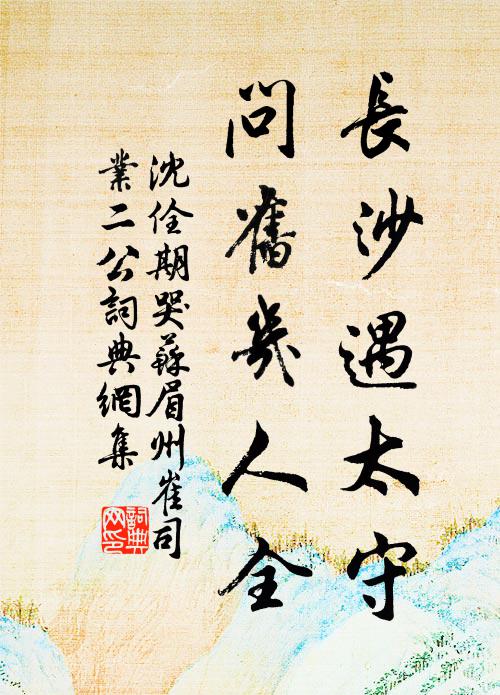 長沙遇太守
問舊幾人全
沈佺期哭蘇眉州崔司
業二公詞典網集
詞典
网印